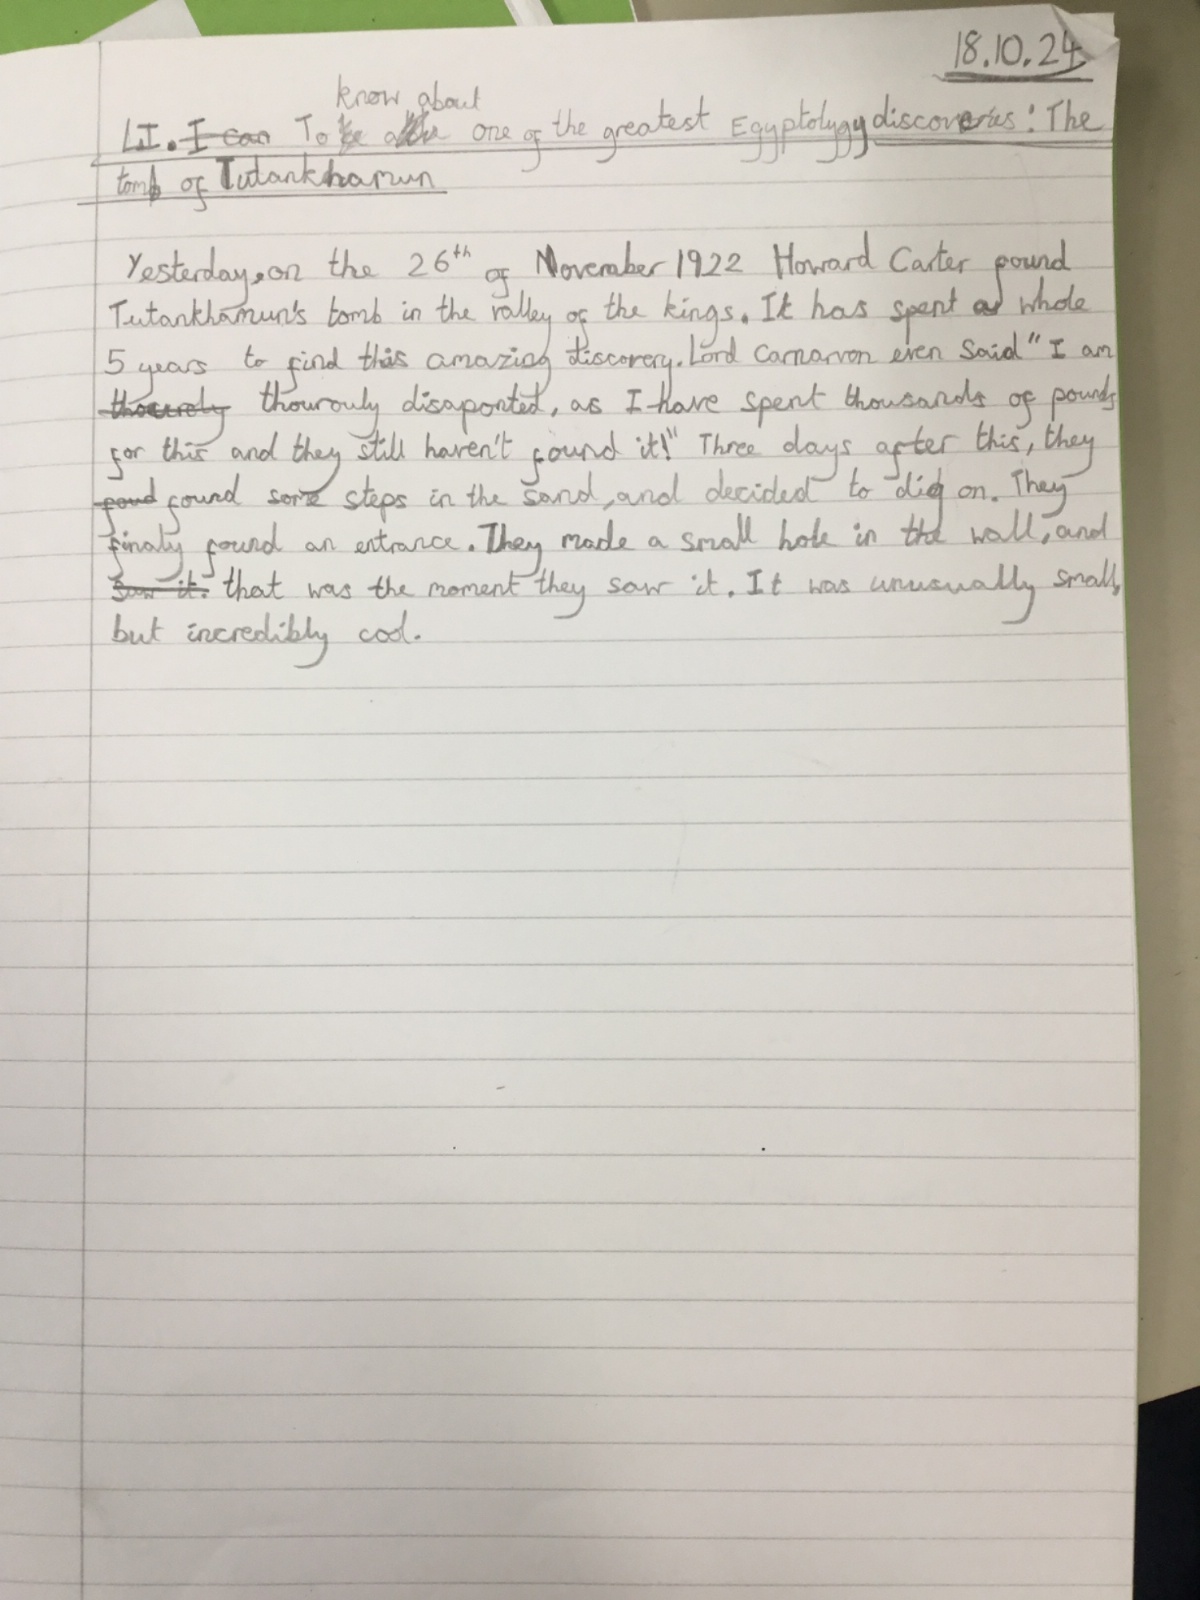 18.10.24
know about
LI. I can To be able one of the greatest Egyptolygy discoveries: The
tomb of Tutankhamun
Yesterday, on the 26th of November 1922 Howard Carter found
Tutankhamun's tomb in the valley of the kings. It has spent a whole
5 years to find this amazing discovery. Lord Carnarvon even said "I am
thourouly disaponted, as I have spent thousands of pounds
for this and they still haven't found it!" Three days after this, they
found found some steps in the sand, and decided to dig on. They
finaly found an entrance. They made a small hole in the wall, and
saw it. that was the moment they saw it. It was unusually small,
but incredibly cool.